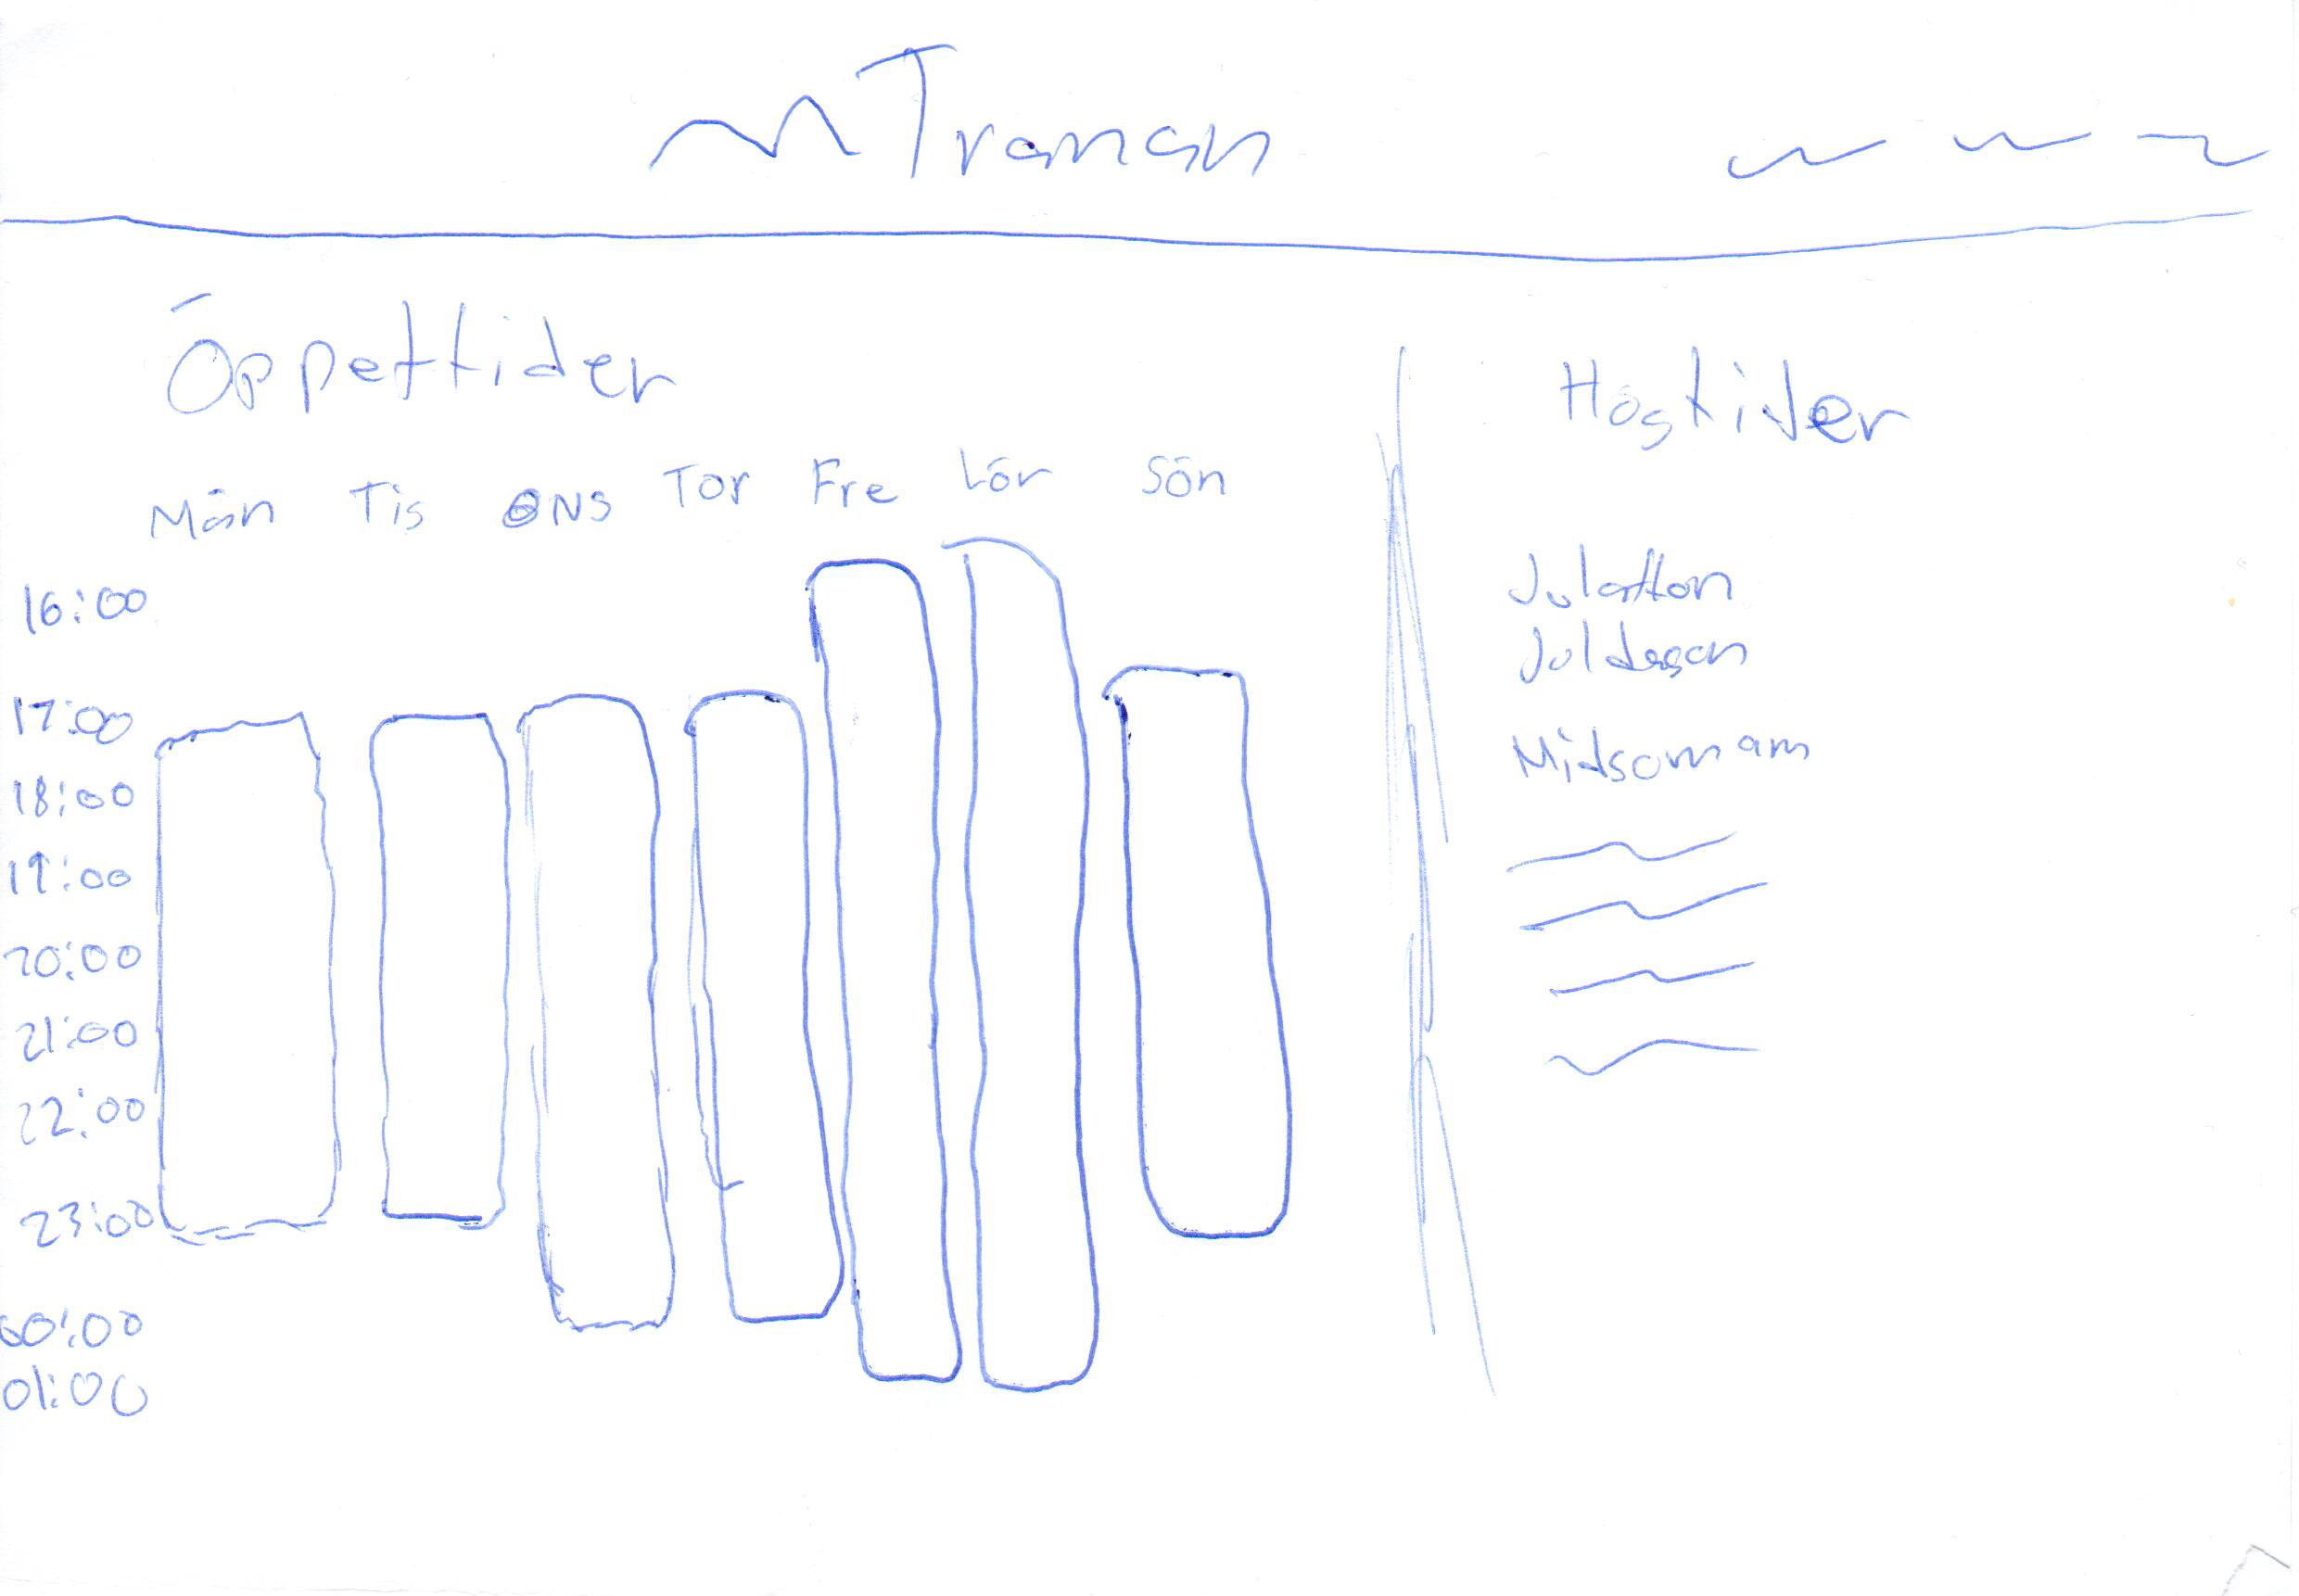 Tranan
Öppettider
Högtider
Mån Tis ONS Tor Fre Lör Sön
16:00
17:00
18:00
19:00
20:00
21:00
22:00
23:00
00:00
01:00
Julafton
Juldagen
Midsommam